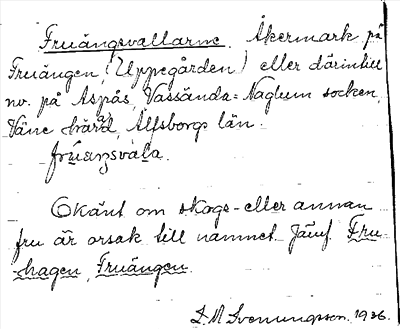 Fruängsvallarne. Åkermark på
Fruängen, (Uppegården) eller därintill
nv. på Aspås, Vassända-Naglum socken,
Väne härad, Älfsborgs län.
frúaŋsvàla.
Okänt om skogs- eller annan
fru är orsak till namnet. Jämf. Fru-
hagen, Fruängen.
S. M. Svenungsson. 1926.